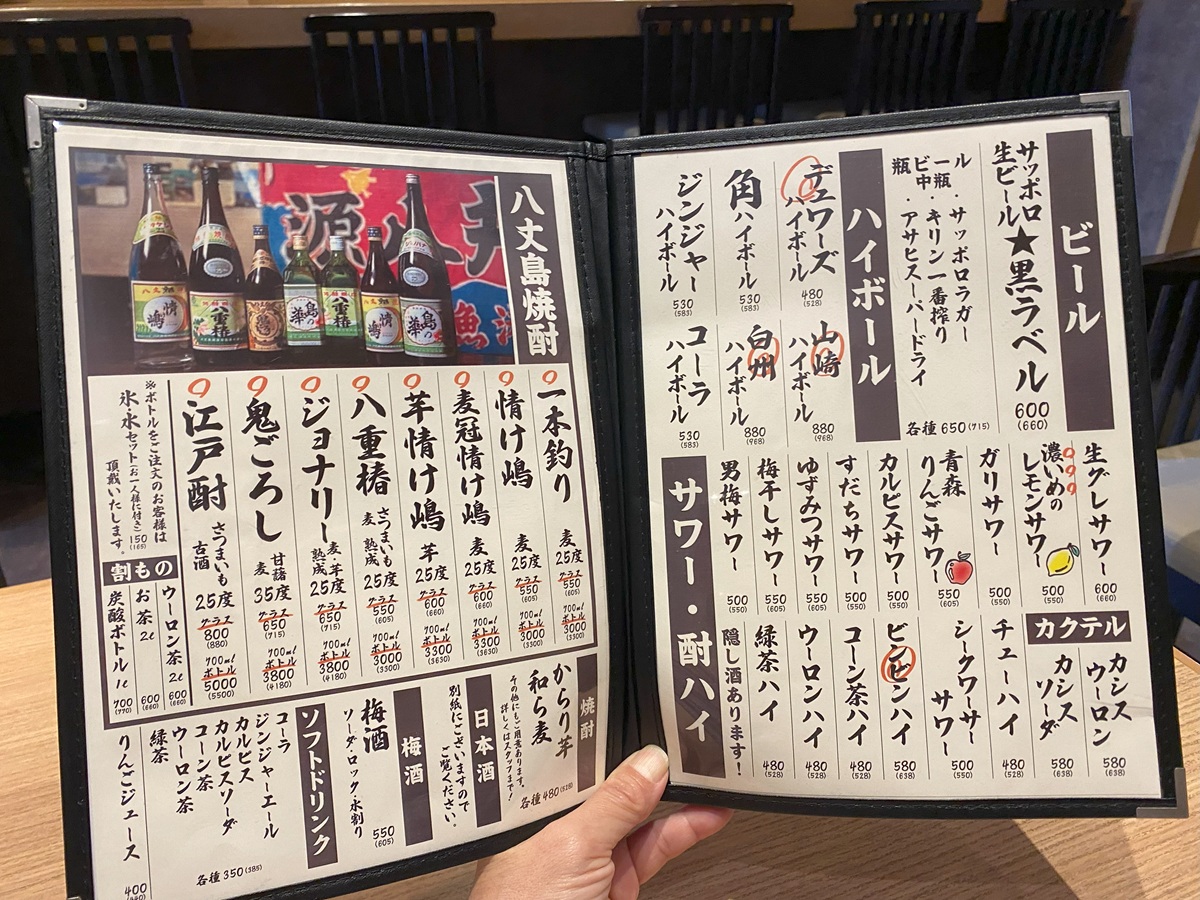 ビール
サッポロ生ビール★黒ラベル
600
(660)
ビール
中瓶
一・サッポロラガー
・キリン一番搾り
・アサヒスーパードライ
各種 650 (715)
ハイボール
デュワーズハイボール
480
(528)
角ハイボール
530
(583)
ジンジャーハイボール
530
(583)
山崎ハイボール
880
(968)
白州ハイボール
880
(968)
コーラハイボール
530
(583)
サワー・酎ハイ
生グレサワー
600
(660)
濃いめのレモンサワー
500
(550)
ガリサワー
500
(550)
青森りんごサワー
550
(605)
カルピスサワー
500
(550)
すだちサワー
500
(550)
ゆずみつサワー
550
(605)
梅干しサワー
550
(605)
男梅サワー
500
(550)
カクテル
カシスウーロン
580
(638)
カシスソーダ
580
(638)
チューハイ
480
(528)
シークワーサーサワー
500
(550)
ビンビンハイ
580
(638)
コーン茶ハイ
480
(528)
ウーロンハイ
480
(528)
緑茶ハイ
480
(528)
隠し酒あります!
八丈島焼酎
源
八重椿
情け嶋
島の華
一本釣り
麦
25度
グラス
550
(605)
700ml
ボトル
3000
(3300)
情け嶋
麦
25度
グラス
550
(605)
700ml
ボトル
3000
(3300)
麦冠情け嶋
麦
25度
グラス
600
(660)
700ml
ボトル
3300
(3630)
芋情け嶋
芋
25度
グラス
600
(660)
700ml
ボトル
3300
(3630)
八重椿
さつまいも
麦
熟成
25度
グラス
550
(605)
700ml
ボトル
3000
(3300)
ジョナリー
麦・芋
熟成
25度
グラス
650
(715)
700ml
ボトル
3800
(4180)
鬼ごろし
甘藷
麦
35度
グラス
650
(715)
700ml
ボトル
3800
(4180)
江戸酎
さつまいも
古酒
25度
グラス
800
(880)
700ml
ボトル
5000
(5500)
※ボトルをご注文のお客様は
氷・水セット(お一人様に付き)150
(165)
頂戴いたします。
割もの
ウーロン茶 2ℓ
600
(660)
お茶 2ℓ
600
(660)
炭酸ボトル 1ℓ
700
(770)
焼酎
からり芋
和ら麦
その他にもご用意あります。
詳しくはスタッフまで!
各種 480 (528)
日本酒
別紙にございますので
ご覧ください。
梅酒
梅酒
ソーダ・ロック・水割り
550
(605)
ソフトドリンク
コーラ
ジンジャーエール
カルピス
カルピスソーダ
コーン茶
ウーロン茶
緑茶
各種 350 (385)
りんごジュース
400